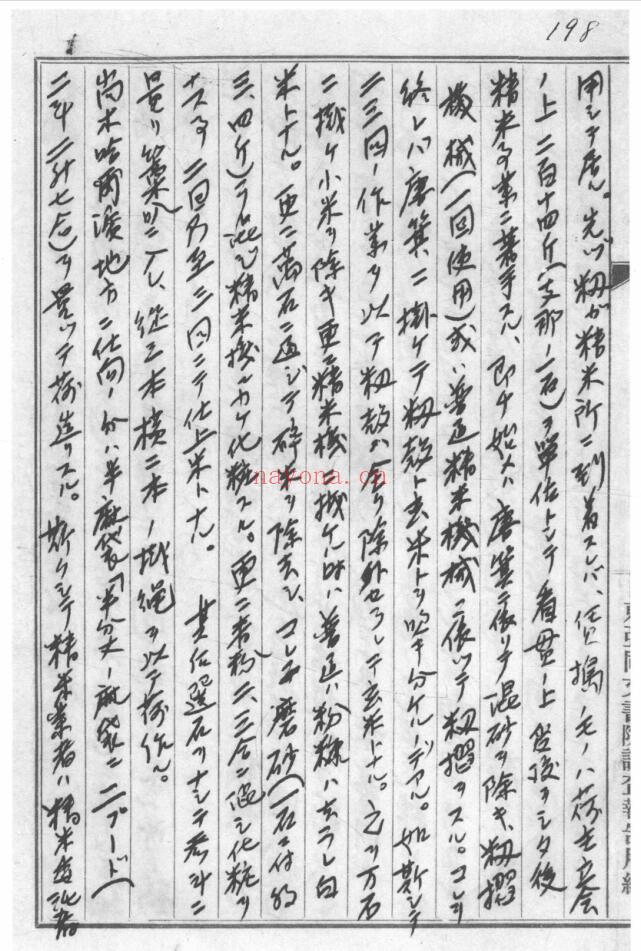 198
用シテ居ル。先ヅ籾ガ精米所ニ到着スレバ、仕 モノハ荷主立会
ノ上二百十四斤(支那ノ一石)ヲ單位トシテ看貫ノ上 シタ後
精米ノ業ニ着手スル、即チ始メハ唐箕ニ依リテ混砂ヲ除キ、籾摺
機械(一回使用)或ハ普通精米機械ニ依ツテ籾摺ヲスル。コレヲ
終レバ唐箕ニ掛ケテ籾殻ト玄米トヲ吹キ分ケルノデアル。如斯シテ
二三回ノ作業ヲ以テ籾殻ガ 除外セラレテ玄米トナル。之ヲ万石
ニ掛ケ小米ヲ除キ更ニ精米機ニ掛ケル時ハ普通ハ粉糠ハ去ラレ白
米トナル。更ニ萬石ニ通ジテ碎米ヲ除去シ、コレニ磨砂(一石ニ付約
三、四斤)ヲ混ジ精米機ニカケ化粧スル。更ニ 粉二、三合ニ シ化粧ヲ
ナス事二回乃至三回ニテ仕上米トナル。 其后選石ヲナシテ 斗ニ
量リ叺ニ入レ、縱三本横二本ノ掛繩ヲ以テ荷作ル。
尚木哈爾濱地方ニ仕向ノ分ハ半麻袋「半分大ノ麻袋ニ二プード」
二斗二升七合)ヲ量ツテ荷造リスル。 斯クシテ精米業者ハ精米
東亞同文書院調査報告用紙
nayona.cn